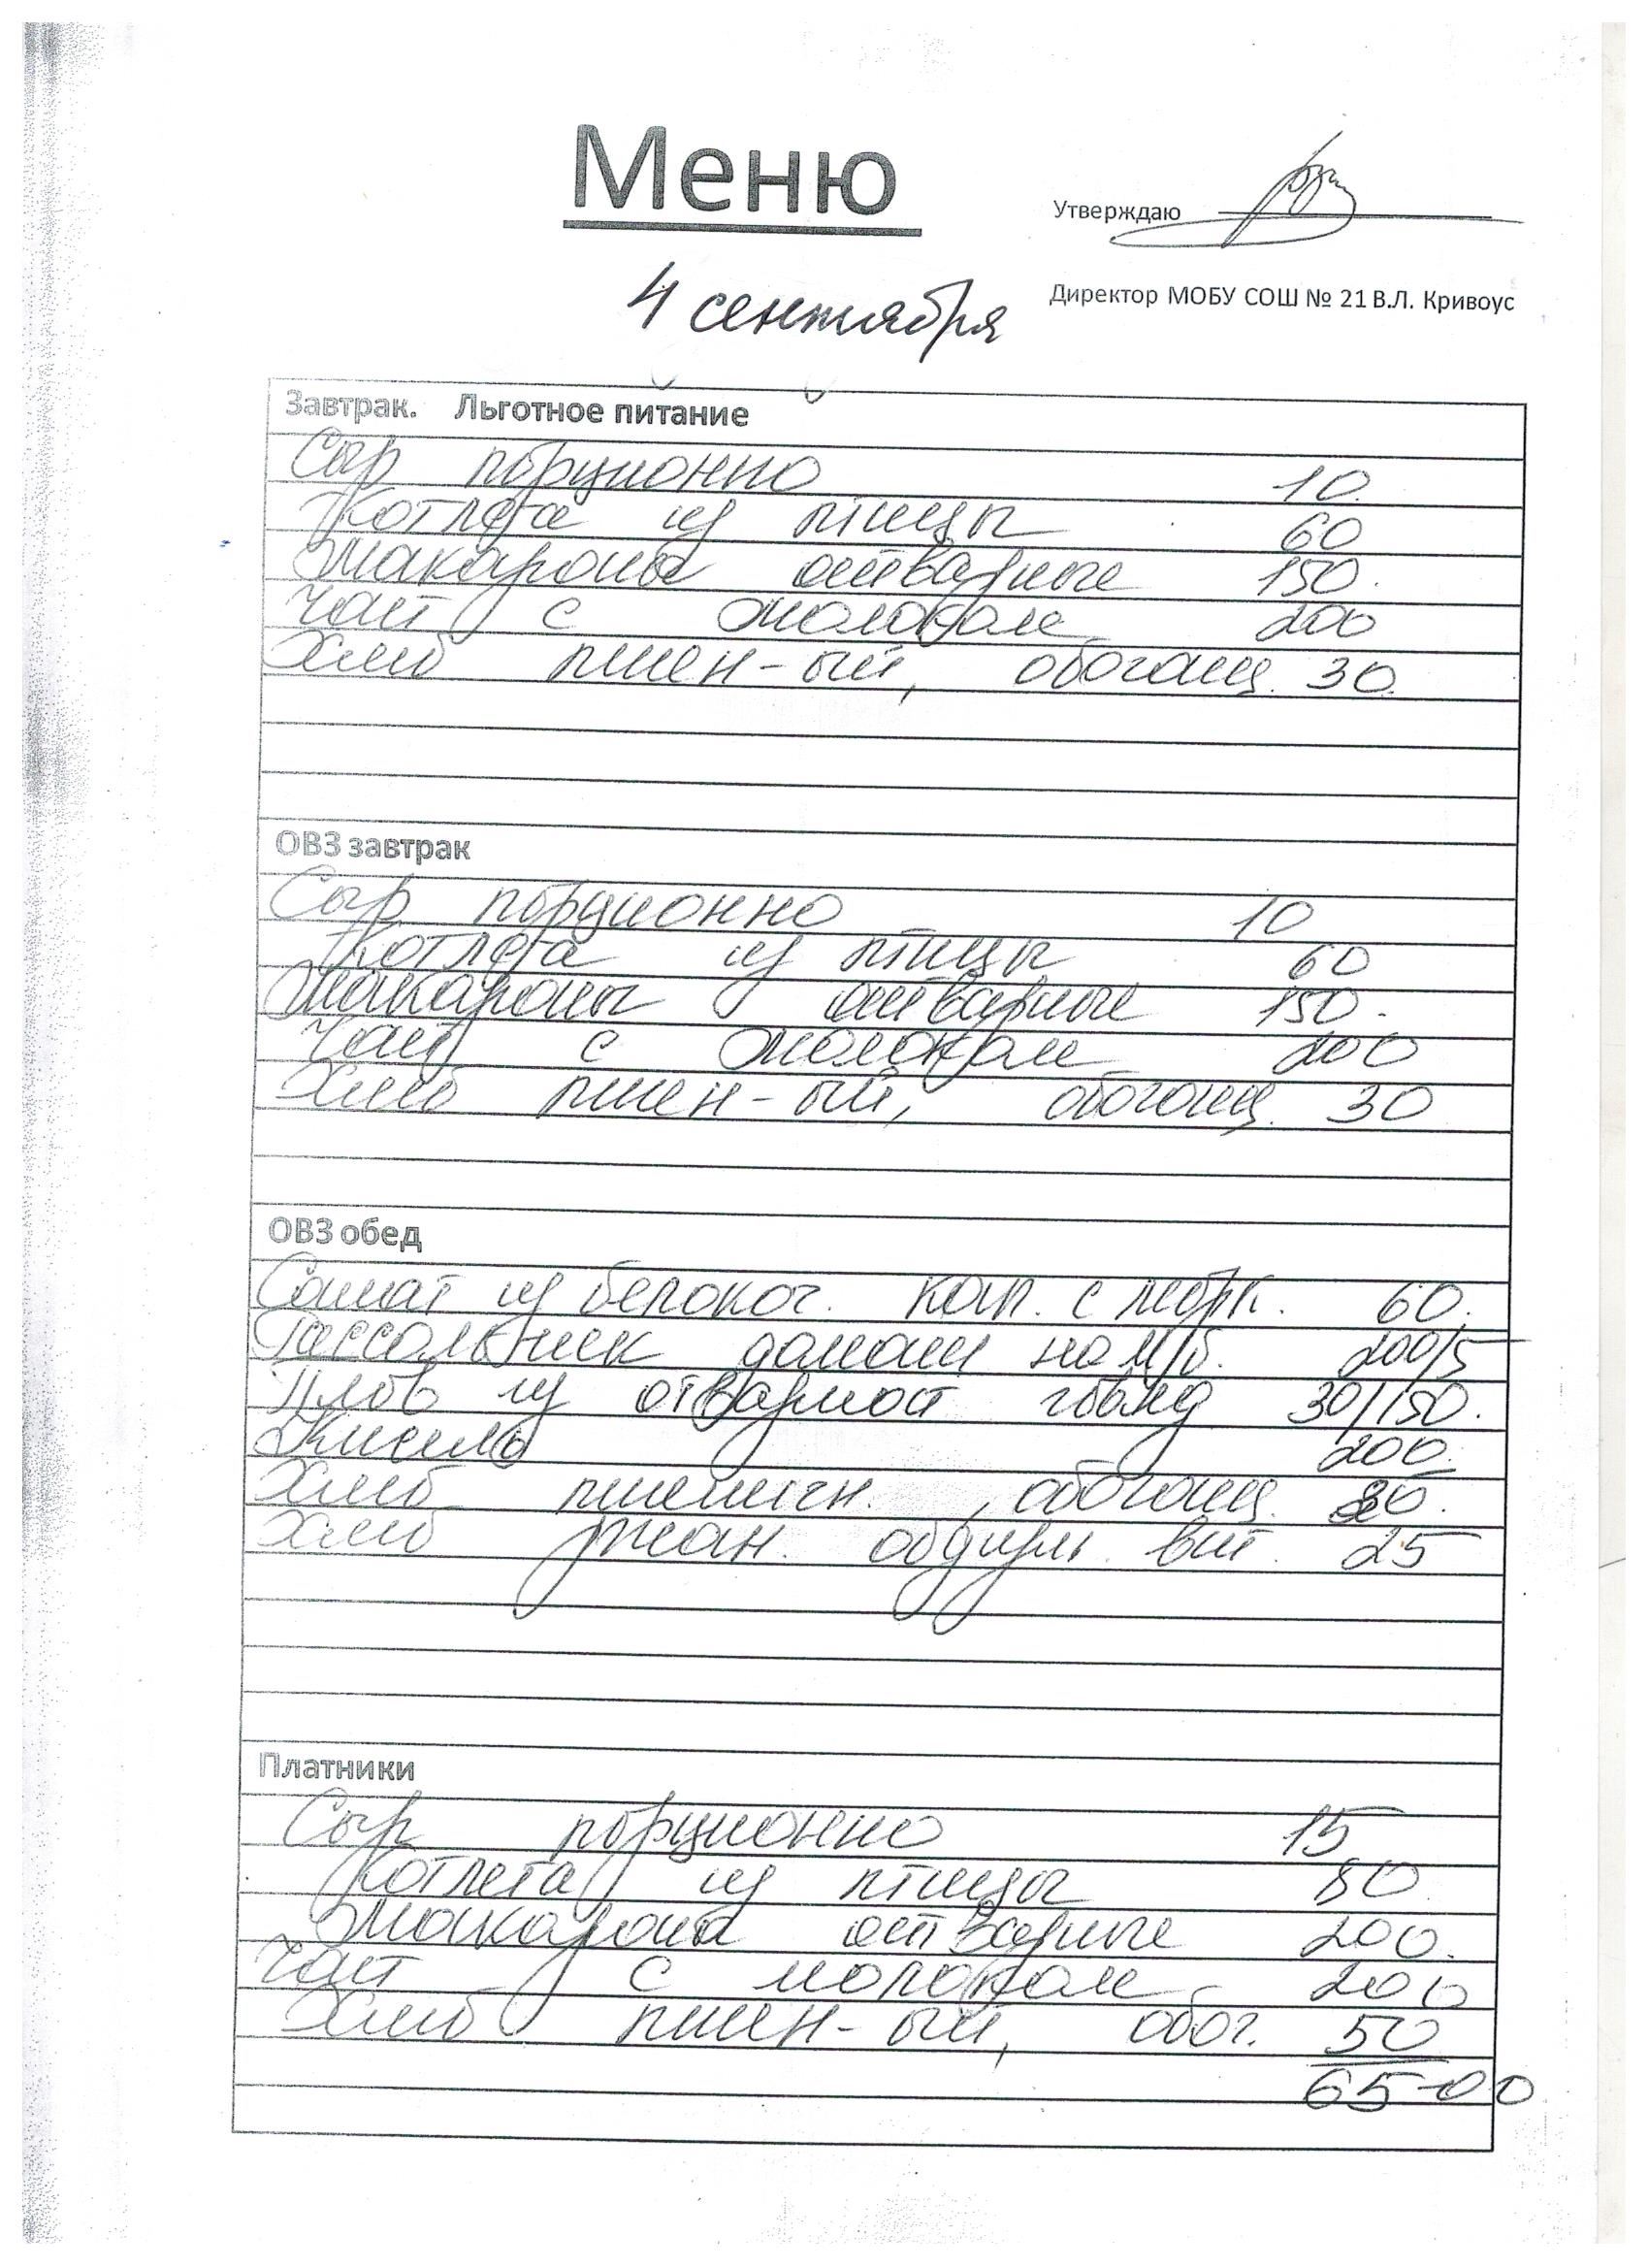 Меню
Утверждаю
Директор МОБУ СОШ № 21 В.Л. Кривоус
4 сентября
Завтрак. Льготное питание
Сыр порционно 10.
Котлета из птицы 60
Макароны отварные 150.
Чай с молоком 200
Хлеб пшен-ый, обогащ. 30.
ОВЗ завтрак
Сыр порционно 10
Котлета из птицы 60
Макароны отварные 150.
Чай с молоком 200
Хлеб пшен-ый, обогащ. 30
ОВЗ обед
Салат из белокоч. кап. с морк. 60.
Рассольник домаш на м/б. 200/5
Плов из отварной говяд 30/150.
Кисель 200.
Хлеб пшеничн., обогащ.
Хлеб ржан. обдирн. вит. 25
Платники
Сыр порционно 15
Котлета из птицы 80
Макароны отварные 200.
Чай с молоком 200
Хлеб пшен-ый, обог. 50
65-00